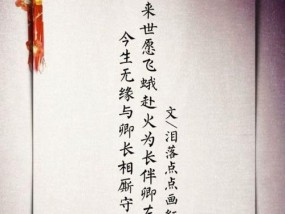 今生无缘与卿长相厮守
来世愿飞蛾赴火为长伴卿左
文/泪落点点画